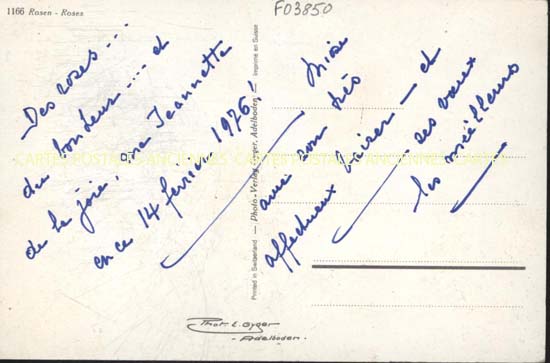 1166 Rosen - Roses
F03850
Des roses...
du bonheur.... et
de la joie, ma Jeannette
en ce 14 février 1976!
Mise
avec son très
affectueux baiser — et
ses vœux
les meilleurs
CARTES POSTALES ANCIENNES CARTES POSTALES ANCIENNES CARTES
Printed in Switzerland — Photo-Verlag Gyger, Adelboden — Imprimé en Suisse
Phot. E. Gyger
- Adelboden -